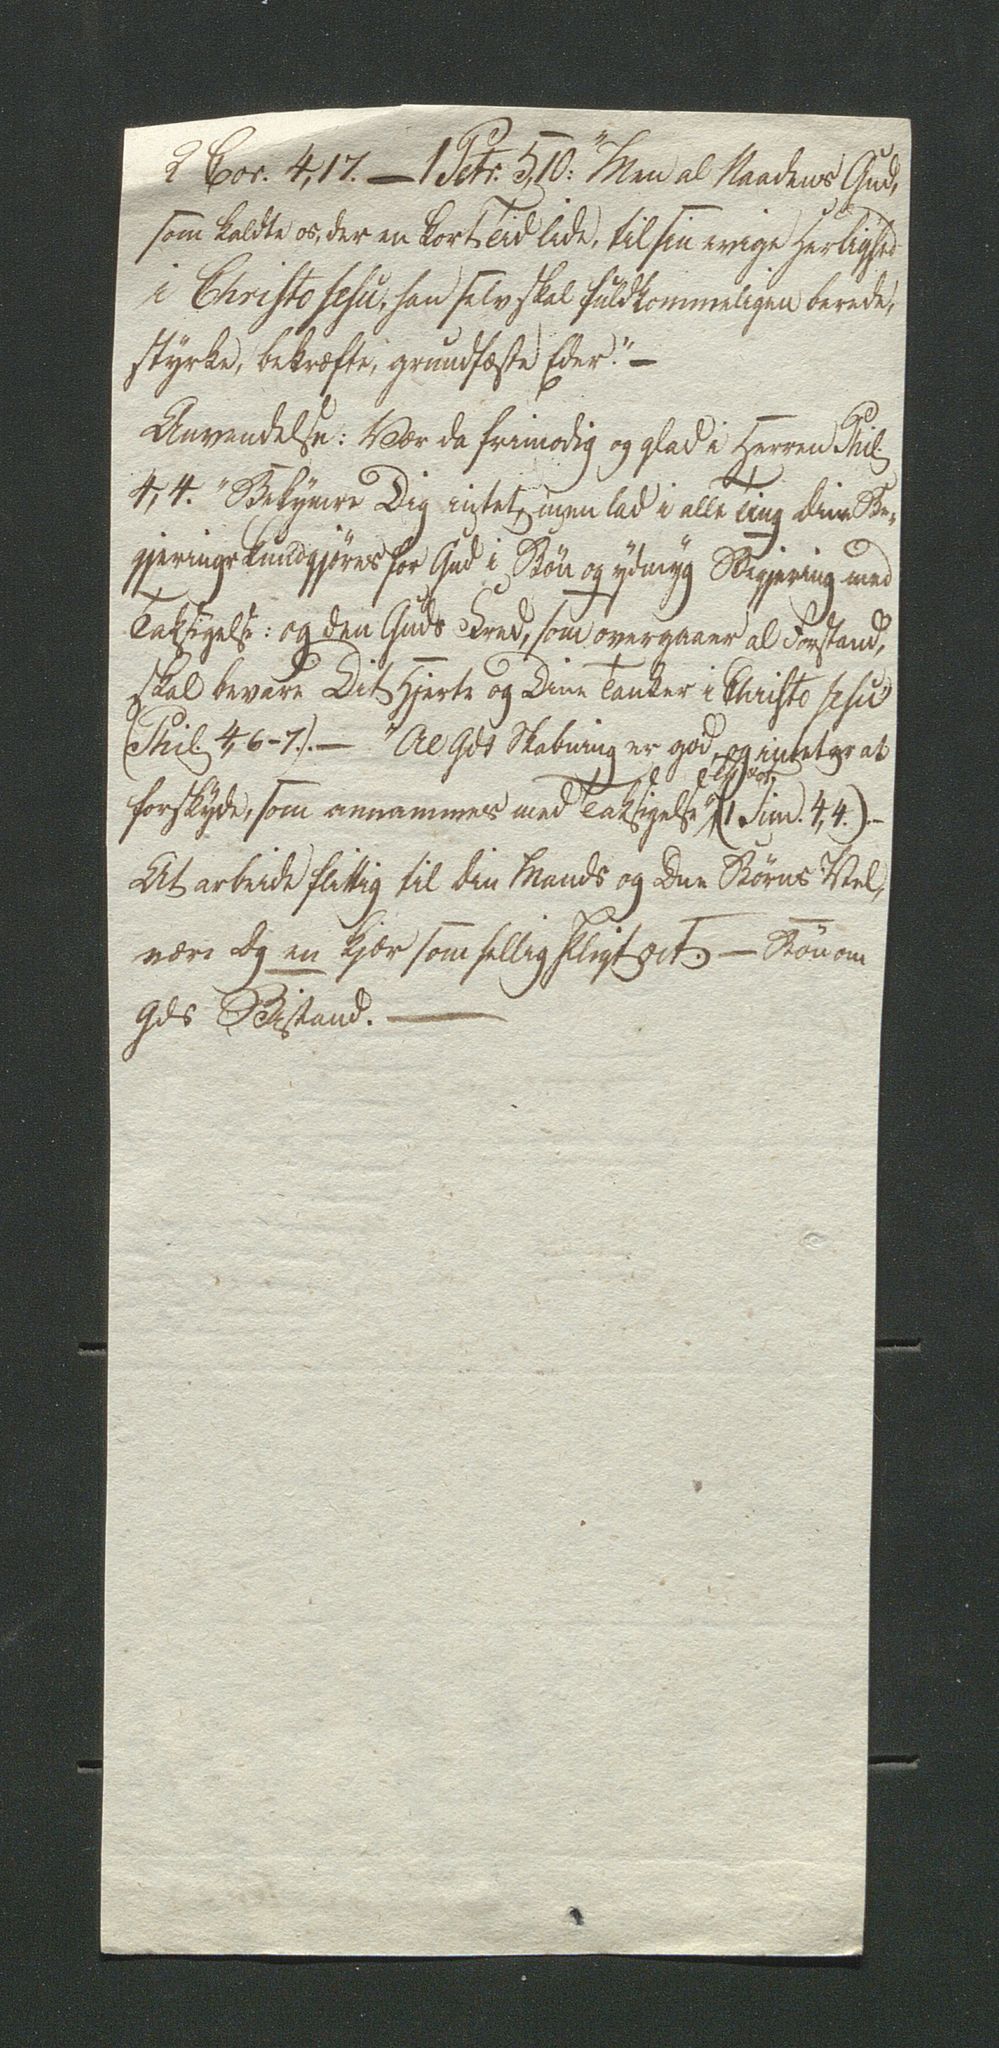 2 Cor. 4,17. — 1 Petr. 5,10: "Men al Naadens Gud,
som kaldte os, der en kort Tid lide, til sin evige Herlighed
i Christo Jesu, han selv skal fuldkommeligen berede,
styrke, bekræfte, grundfæste Eder." —
Anvendelse: Vær da frimodig og glad i Herren Phil.
4,4. "Bekymre Dig intet, men lad i alle Ting dine Be-
gjeringer kundgjøres for Gud i Bøn og ydmyg Begjering med
Taksigelse: og den Guds Fred, som overgaaer al Forstand,
skal bevare Dit Hjerte og Dine Tanker i Christo Jesu"
(Phil. 4,6-7.). — "Al Gds Skabning er god, og intet er at
forskyde, som annammes med Taksigelse" (1 Tim. 4,4.). —
At arbeide flittig til din Mands og Dne Børns Vel,
være Dg en kjær som hellig Pligt &ct. — Bøn om
Gds Bistand. —